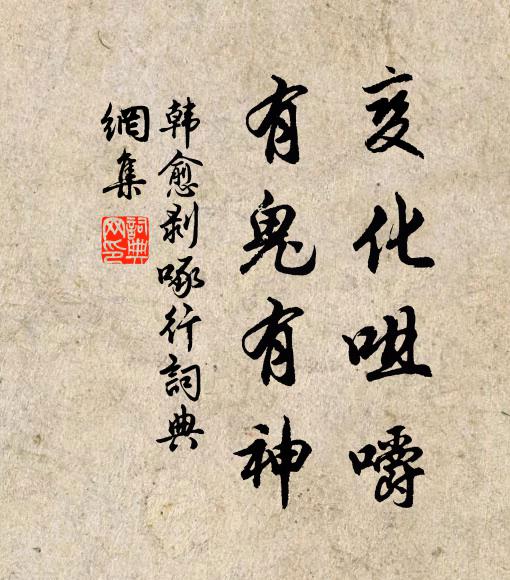 变化咀嚼
有鬼有神
韩愈剥啄行词典
網集
詞典
网印